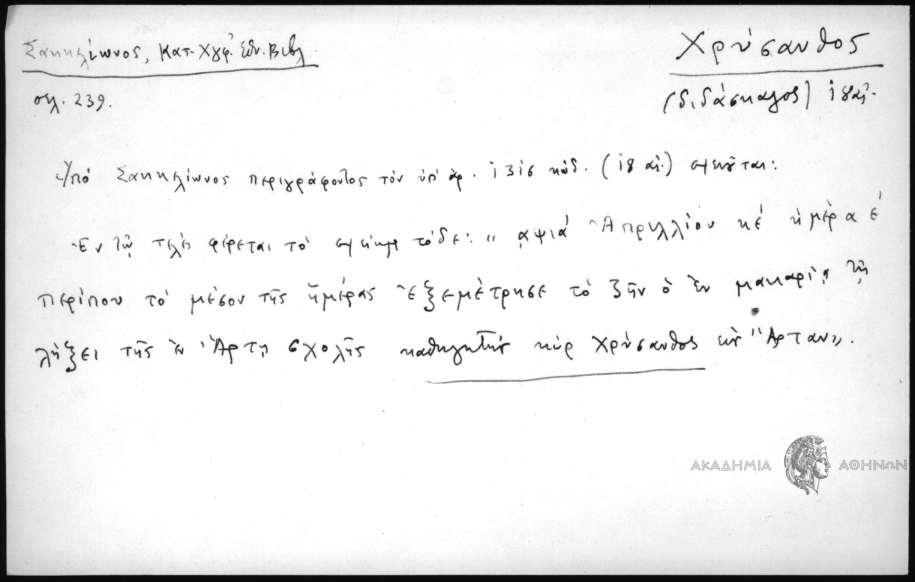 Σακκελίωνος, Κατ. Χγφ. Εθν. Βιβλ.
Χρύσανθος
σελ. 239.
(διδάσκαλος) ιη αἰ.
Ὑπό Σακκελίωνος περιγράφοντος τόν ὑπ' ἀρ. 1315 κώδ. (ιη αἰ.) σημειοῦται:
Ἐν τῷ τέλει φέρεται τό σημείωμα τόδε: „ αψια Ἀπριλλίου κέ ἡμέρα έ
περίπου τό μέσον τῆς ἡμέρας ἐξεμέτρησε τό ζῆν ὁ ἐν μακαρίᾳ τῇ
λήξει τῆς ἐν Ἄρτῃ σχολῆς καθηγητής κύρ Χρύσανθος εἰς Ἄρταν„.
ΑΚΑΔΗΜΙΑ ΑΘΗΝΩΝ